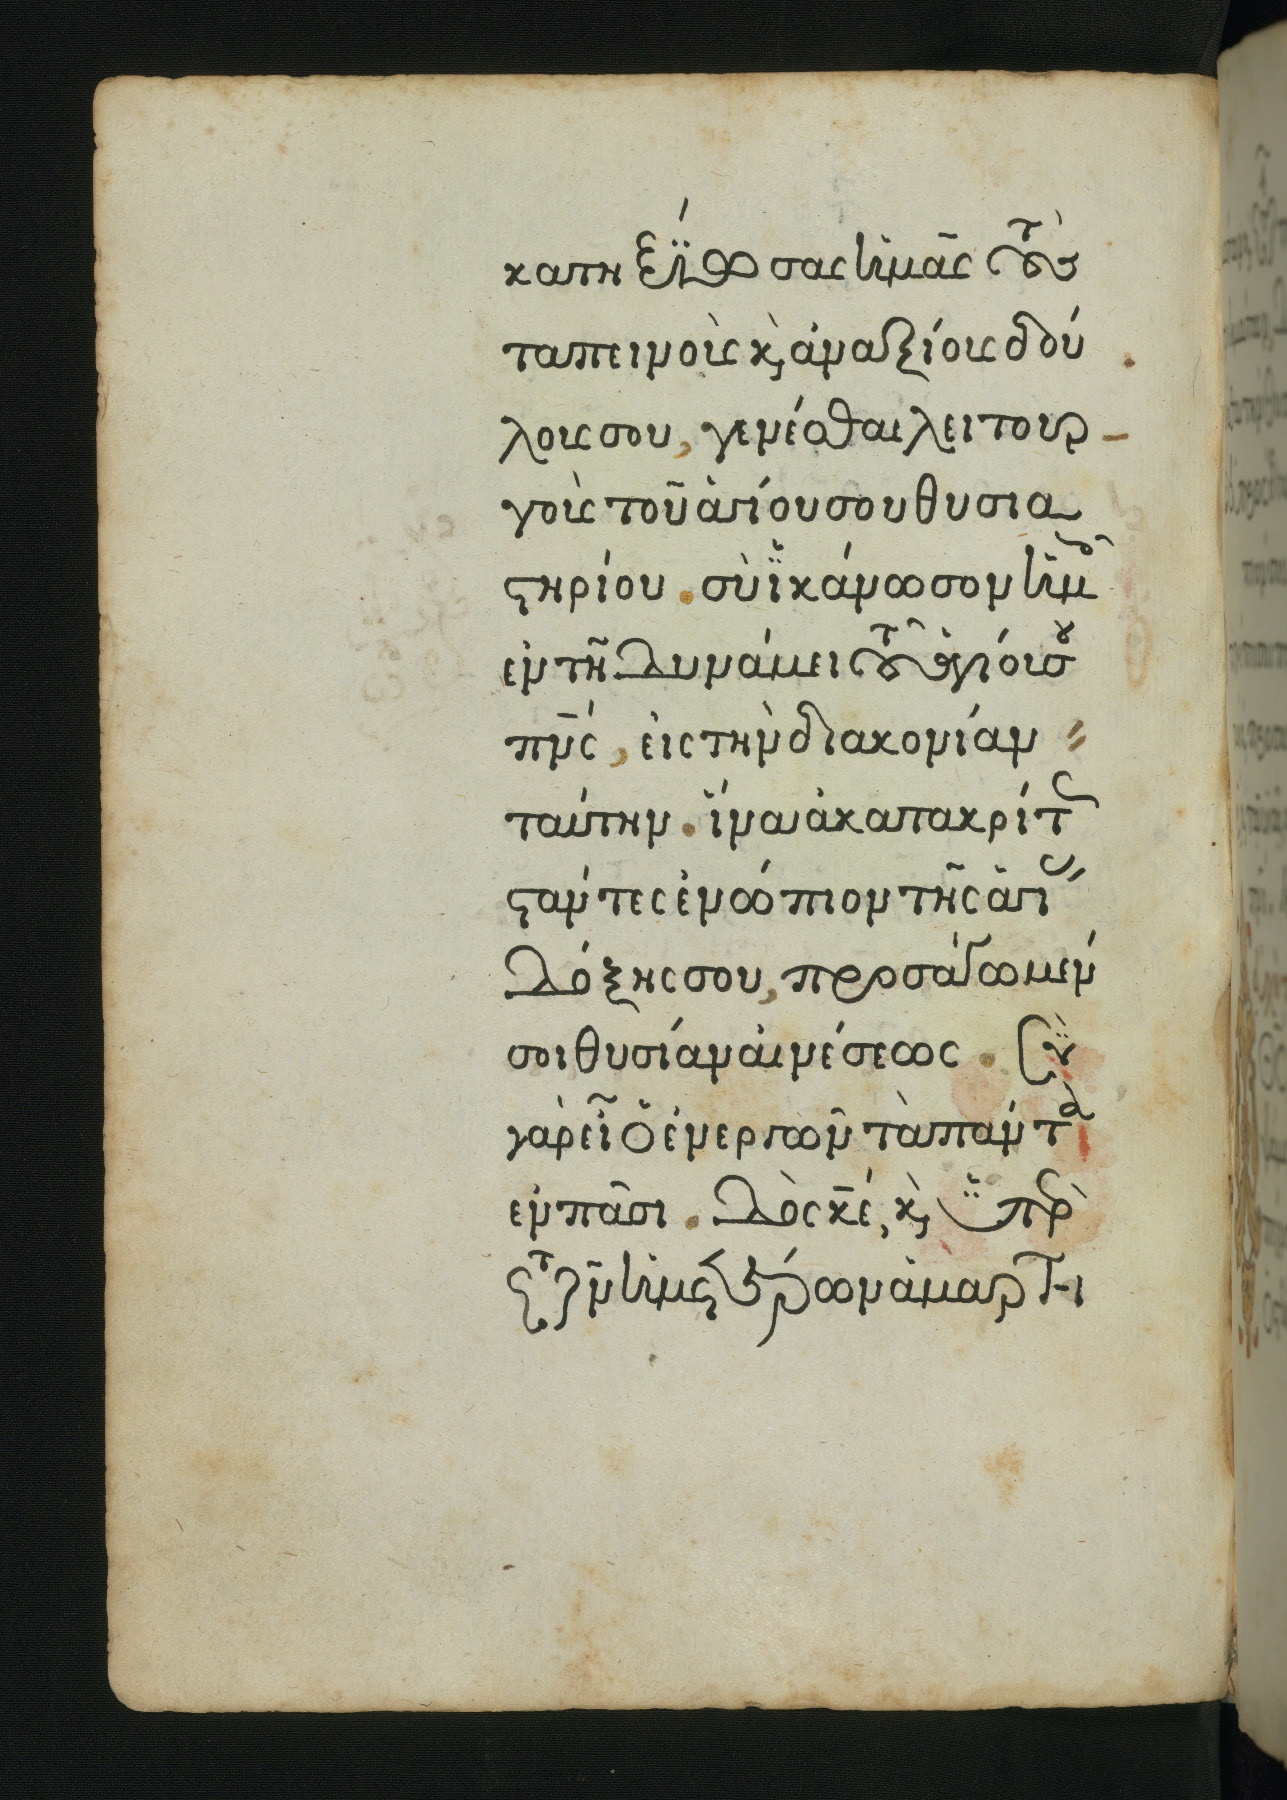 κατηξΐωσας ἡμᾶς τοὺς
ταπεινοὺς κ̀ ἀναξίους δού
λους σου, γενέσθαι λειτουρ
γοὺς τοῦ ἁγίου σου θυσια
στηρίου. σὺ ἱκάνωσον ἡμᾶς
ἐν τῆ δυνάμει τοῦ ἁγίου σου
πν̅ς, εἰς τὴν διακονίαν
ταύτην. ἵνα ἀκατακρίτως
στάντες ἐνώπιον τῆς ἁγίας
δόξης σου, προσάγωμέν
σοι θυσίαν αἰνέσεως. Σὺ
γὰρ εἶ ὁ ἐνεργῶν τὰ πάντα
ἐν πᾶσι. Δὸς κ̅ε, κ̀ ὑπὲρ
τῶν ἡμετέρων ἁμαρτη